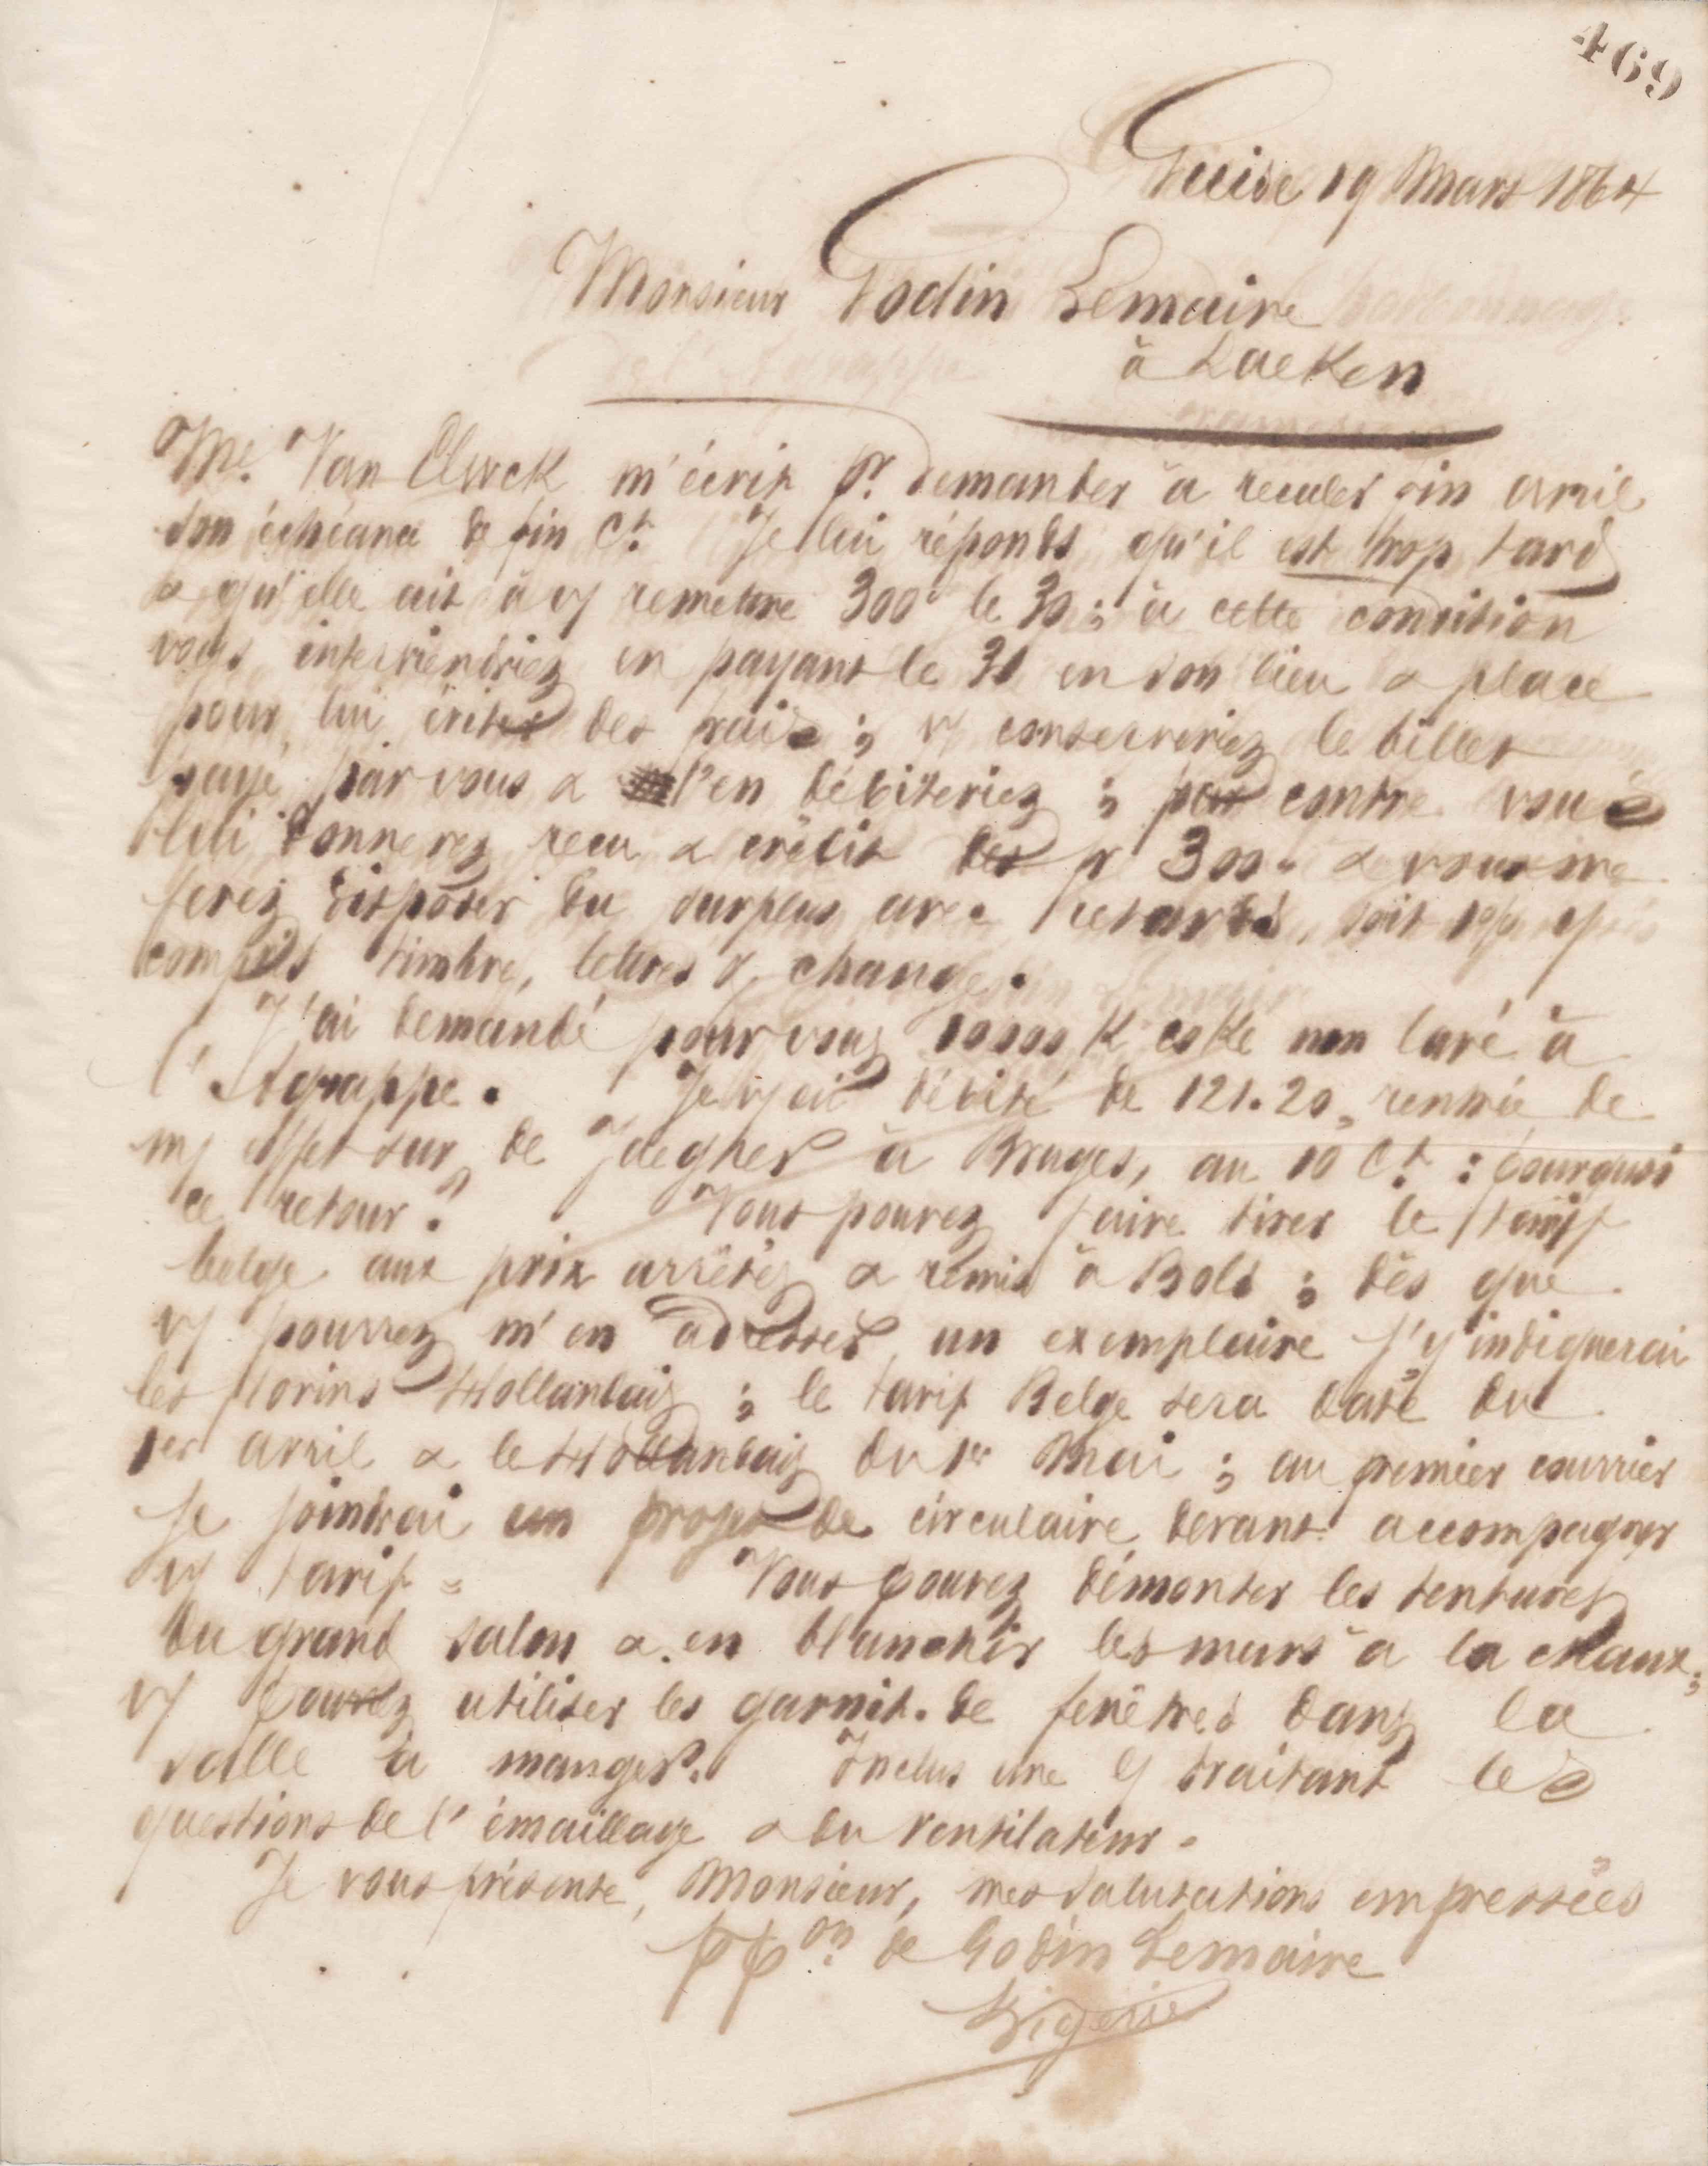 469
Guise 19 Mars 1864
Monsieur Godin Lemaire
à Laeken
Me. Van m'écrit pr. demander à reculer fin avril
son échéance de fin Ct. Je lui réponds qu'il est trop tard
& qu'elle ait à vs remettre 300 le 30 ; à cette condition
vous interviendriez en payant le 31 en son lieu & place
pour lui éviter des frais ; vs conserveriez le billet
payé par vous & l'en débiteriez ; par contre vous
lui donnerez reçu & crédit des 300 & vous me
ferez disposer du surplus avec retards, soit
compris timbre, lettres & change.
J'ai demandé pour vous 10000 K coke non lavé à
l'Agrappe. Je vs ai débité de 121.20, rentrée de
ms effet sur de Jaegher à Bruges, au 10 Ct. : pourquoi
ce retour ? Vous pouvez faire tirer le tarif
belge aux prix arrêtés & remis à Bols ; dès que
vs pourrez m'en adresser un exemplaire j'y indiquerai
les florins Hollandais ; le tarif Belge sera daté du
1er avril & le Hollandais du 1er Mai ; au premier courrier
je joindrai un projet de circulaire devant accompagner
vs tarif = Vous pouvez démonter les tentures
du grand salon & en blanchir les murs à la chaux ;
vs pouvez utiliser les garnit. de fenêtres dans la
salle à manger. Inclus une traitant les
questions de l'émaillage & du ventilateur.
Je vous présente, Monsieur, mes salutations empressées
ppon. de Godin Lemaire